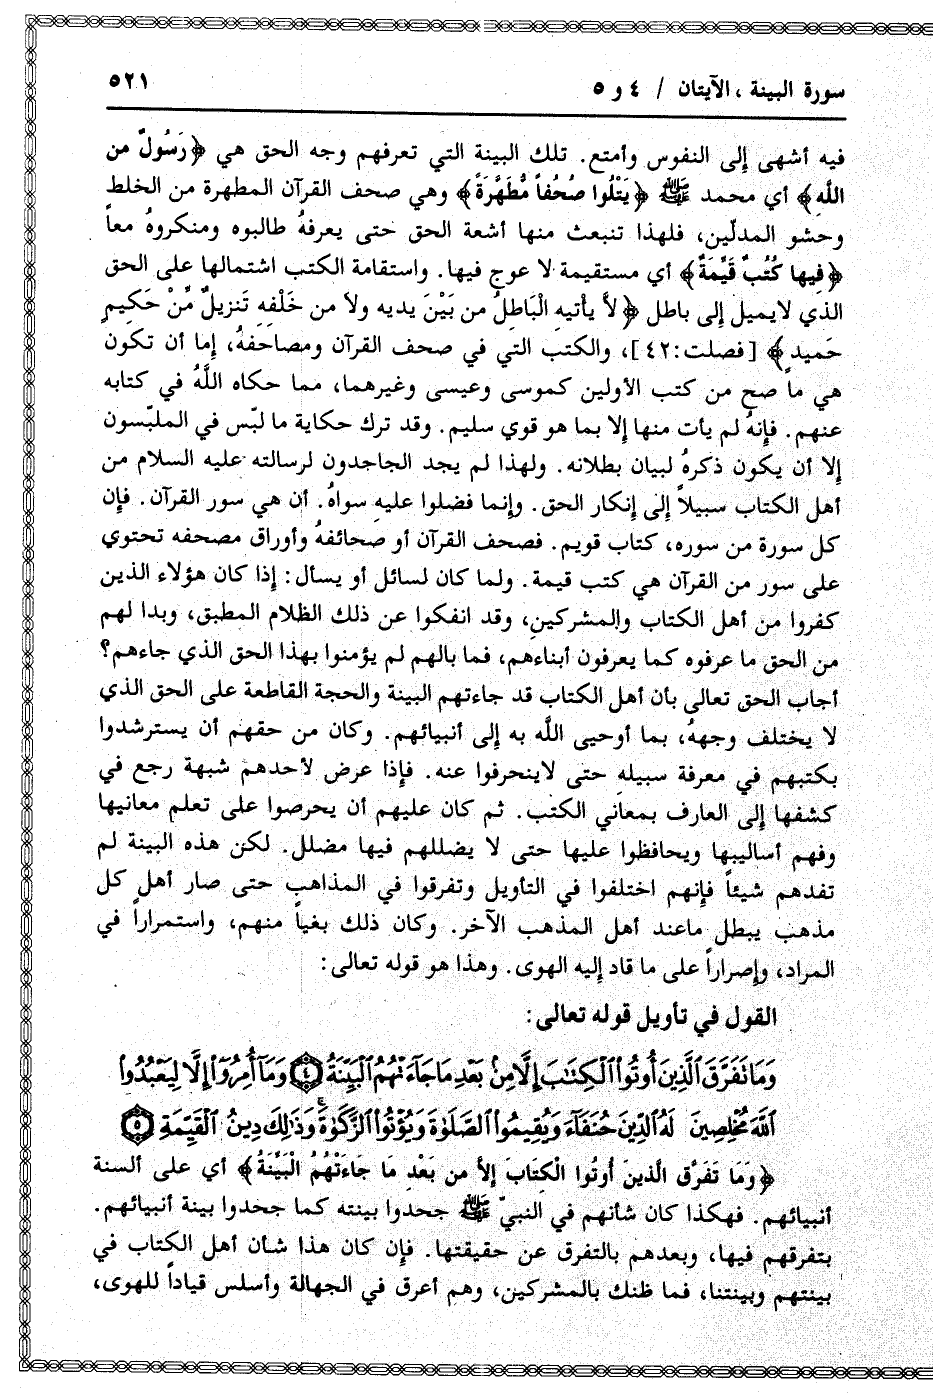 سورة البينة ، الآيتان / ٤ و ٥
٥٢١
فيه أشهى إلى النفوس وأمتع. تلك البينة التي تعرفهم وجه الحق هي ﴿رَسُولٌ من
اللَّهِ﴾ أي محمد ﷺ ﴿يَتْلُوا صُحُفاً مُطَهَّرَةً﴾ وهي صحف القرآن المطهرة من الخلط
وحشو المدلّين، فلهذا تنبعث منها أشعة الحق حتى يعرفهُ طالبوه ومنكروهُ معاً
﴿فِيها كُتُبٌ قَيِّمَةٌ﴾ أي مستقيمة لا عوج فيها. واستقامة الكتب اشتمالها على الحق
الذي لايميل إلى باطل ﴿لاَّ يأتيهِ الْبَاطِلُ من بَيْنَ يديه ولاَ من خَلْفِهِ تَنزيلٌ مِّنْ حَكيمٍ
حَميدٍ﴾ [فصلت:٤٢]، والكتب التي في صحف القرآن ومصاحفهُ، إما أن تكون
هي ما صح من كتب الأولين كموسى وعيسى وغيرهما، مما حكاه اللَّهُ في كتابه
عنهم. فإنهُ لم يأت منها إلا بما هو قوي سليم. وقد ترك حكاية ما لبّس في الملبّسون
إلا أن يكون ذكرهُ لبيان بطلانه. ولهذا لم يجد الجاحدون لرسالته عليه السلام من
أهل الكتاب سبيلاً إلى إنكار الحق. وإنما فضلوا عليه سواهُ. أن هي سور القرآن. فإن
كل سورة من سوره، كتاب قويم. فصحف القرآن أو صحائفهُ وأوراق مصحفه تحتوي
على سور من القرآن هي كتب قيمة. ولما كان لسائل أو يسأل: إذا كان هؤلاء الذين
كفروا من أهل الكتاب والمشركين، وقد انفكوا عن ذلك الظلام المطبق، وبدا لهم
من الحق ما عرفوه كما يعرفون أبناءهم، فما بالهم لم يؤمنوا بهذا الحق الذي جاءهم؟
أجاب الحق تعالى بأن أهل الكتاب قد جاءتهم البينة والحجة القاطعة على الحق الذي
لا يختلف وجههُ، بما أوحيى اللَّه به إلى أنبيائهم. وكان من حقهم أن يسترشدوا
بكتبهم في معرفة سبيله حتى لاينحرفوا عنه. فإذا عرض لأحدهم شبهة رجع في
كشفها إلى العارف بمعاني الكتب. ثم كان عليهم أن يحرصوا على تعلم معانيها
وفهم أساليبها ويحافظوا عليها حتى لا يضللهم فيها مضلل. لكن هذه البينة لم
تفدهم شيئاً فإنهم اختلفوا في التأويل وتفرقوا في المذاهب حتى صار أهل كل
مذهب يبطل ماعند أهل المذهب الآخر. وكان ذلك بغياً منهم، واستمراراً في
المراد، وإصراراً على ما قاد إليه الهوى. وهذا هو قوله تعالى:
القول في تأويل قوله تعالى:
وَمَا نَفَرَّقَ ٱلَّذِينَ أُوتُوا ٱلْكِتَٰبَ إِلَّا مِنۢ بَعْدِ مَا جَآءَتْهُمُ ٱلْبَيِّنَةُ ﴿٤﴾ وَمَآ أُمِرُوٓا إِلَّا لِيَعْبُدُوا
ٱللَّهَ مُخْلِصِينَ لَهُ ٱلدِّينَ حُنَفَآءَ وَيُقِيمُوا ٱلصَّلَوٰةَ وَيُؤْتُوا ٱلزَّكَوٰةَ ۚ وَذَٰلِكَ دِينُ ٱلْقَيِّمَةِ ﴿٥﴾
﴿وَمَا تَفَرَّق الَّذينَ أُوتُوا الْكِتَابَ إلاَّ من بَعْدِ مَا جَاءَتْهُمُ الْبَيِّنَةُ﴾ أي على ألسنة
أنبيائهم. فهكذا كان شأنهم في النبيّ ﷺ جحدوا بينته كما جحدوا بينة أنبيائهم.
بتفرقهم فيها، وبعدهم بالتفرق عن حقيقتها. فإن كان هذا شأن أهل الكتاب في
بينتهم وبينتنا، فما ظنك بالمشركين، وهم أعرق في الجهالة وأسلس قياداً للهوى،